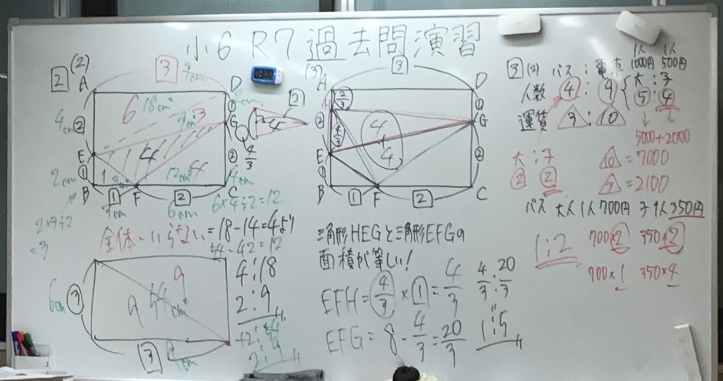 小6 R7 過去問演習
2 (2)
3
9cm
A
D
4cm
6
18cm²
3
2
1
G
4
E
14
2
2cm
1
1
B
1
F
2
C
6cm
4cm
6×4÷2=12
2×3÷2
=3
全体-いらない=18-14=4より
54-42=12
4:18
2:9
12:54
2:9
6cm
3
9
9
54cm²
3
9cm
(3)
3
H
D
2/3
1
G
4/3
4
4
E
2
1
B
1
F
2
C
三角形HEGと三角形EFGの
面積が等しい!
EFH=4/3×1=4/3
EFG=8-4/3=20/3
4/3:20/3
1:5
3 (2)
バス:電車
1人 1人
1000円 500円
人数
4:9
大:子
5:4
運賃
3:10
5000+2000
大:子
2 2
10=7000
3=2100
バス 大人1人700円 子1人350円
1:2
700×2 350×2
700×1 350×4